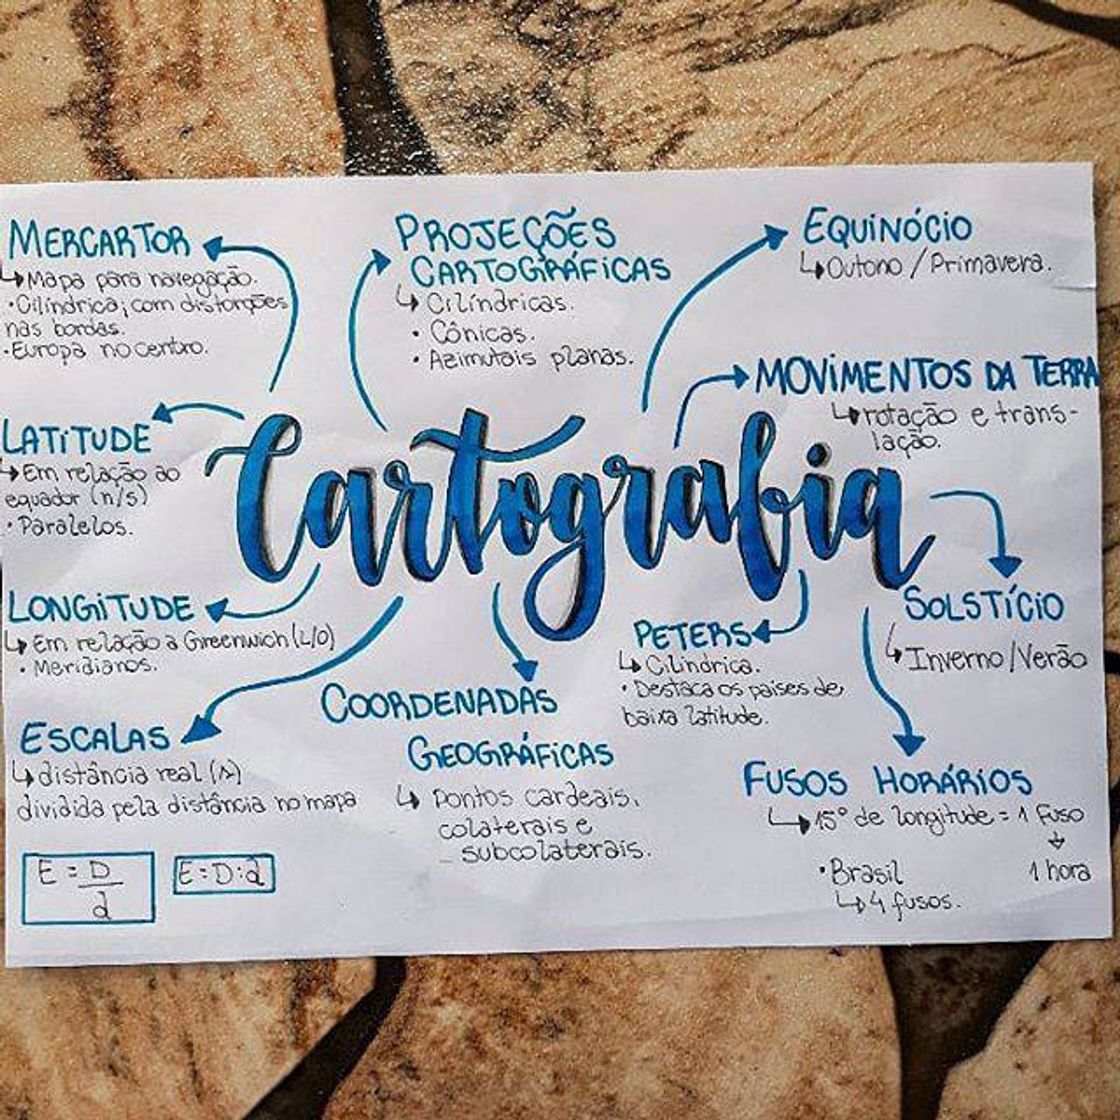 MERCARTOR
↳ Mapa para navegação.
• Cilíndrica; com distorções
nas bordas.
• Europa no centro.
PROJEÇÕES
CARTOGRÁFICAS
↳ Cilíndricas.
• Cônicas.
• Azimutais planas.
EQUINÓCIO
↳ Outono / Primavera.
MOVIMENTOS DA TERRA
↳ rotação e trans-
lação.
LATITUDE
↳ Em relação ao
equador (n/s)
• Paralelos.
Cartografia
LONGITUDE
↳ Em relação a Greenwich (L/O)
• Meridianos.
SOLSTÍCIO
↳ Inverno / Verão
PETERS
↳ Cilíndrica.
• Destaca os países de
baixa latitude.
ESCALAS
↳ distância real
dividida pela distância no mapa
E = D
d
E = D : d
COORDENADAS
GEOGRÁFICAS
↳ pontos cardeais,
colaterais e
subcolaterais.
FUSOS HORÁRIOS
↳ 15° de longitude = 1 Fuso
↓
1 hora
• Brasil
↳ 4 fusos.